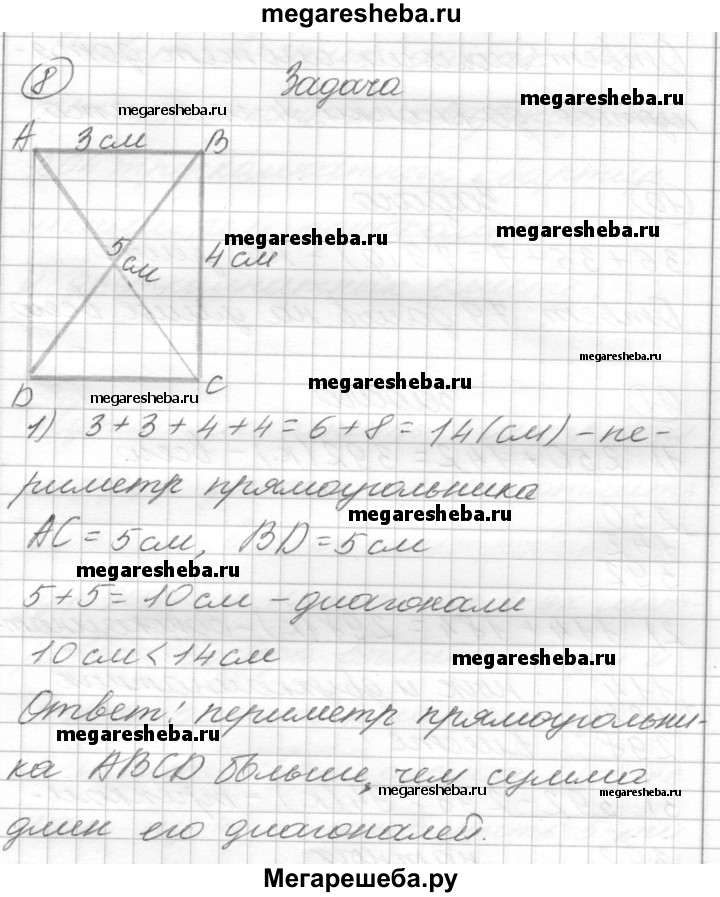 megaresheba.ru
8 Задача
megaresheba.ru
megaresheba.ru
А 3 см В
megaresheba.ru
megaresheba.ru
5 см
4 см
megaresheba.ru
megaresheba.ru
D megaresheba.ru С
1) 3+3+4+4=6+8=14(см) – пе-
риметр прямоугольника
megaresheba.ru
AC = 5 см, BD = 5 см
megaresheba.ru
5+5=10 см – диагонали
10 см < 14 см
megaresheba.ru
Ответ: периметр прямоугольни-
megaresheba.ru
ка ABCD больше, чем сумма
megaresheba.ru
megaresheba.ru
длин его диагоналей.
Мегарешеба.ру